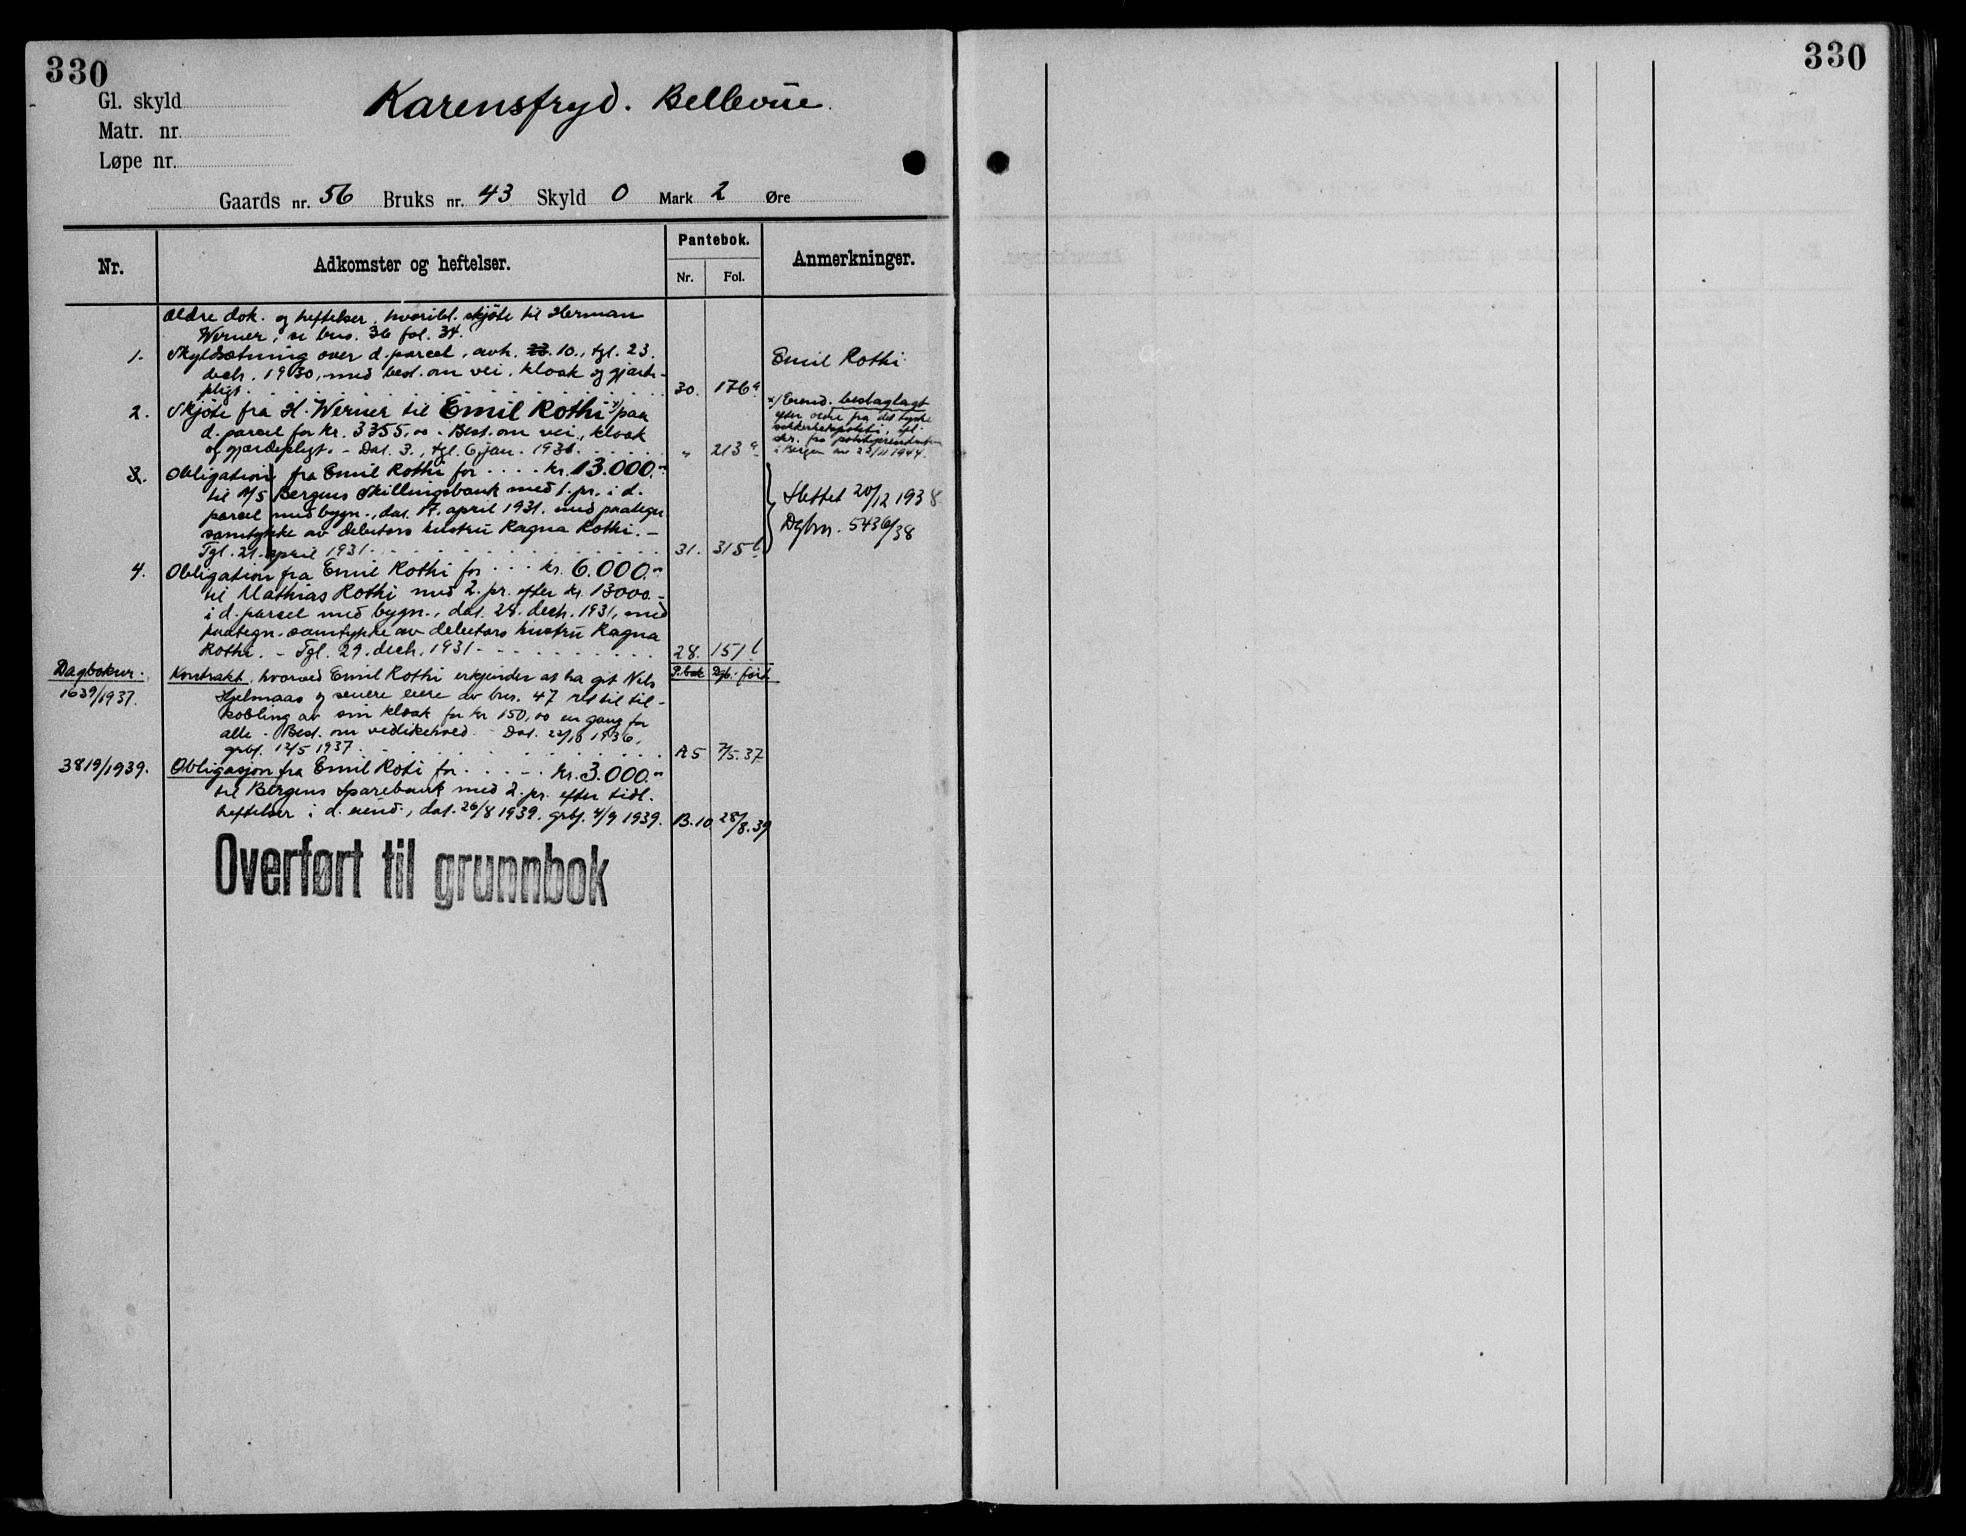 330
330
Gl. skyld
Matr. nr.
Løpe nr.
Karensfryd. Bellevüe.
Gaards nr. 56 Bruks nr. 43 Skyld 0 Mark 2 Øre
Nr.
Adkomster og heftelser.
Pantebok.
Nr.
Fol.
Anmerkninger.
Ældre dok. og heftelser, hvoribl. skjöte til Herman
Werner, se bns. 36 fol. 34.
1. Skyldsætning over d. parcel, avh. 23. 10., tgl. 23.
dech. 1930, med best. om vei, kloak og gjærde-
pligt. 30. 176 a
Emil Rothi
2. Skjöte fra H. Werner til Emil Rothi x) paa
d. parcel for kr. 3355,00 - Best. om vei, kloak
og gjærdepligt. - Dat. 3., tgl. 6 jan. 1931. " 213 a
x) Eiend. beslaglagt
efter ordre fra det tyske
sikkerhetspoliti, ifl.
skr. fra
i Bergen av 23/11 1944.
3. Obligation fra Emil Rothi for kr. 13.000.-
til A/S Bergens Skillingsbank med 1. pr. i d.
parcel med bygn., dat. 17. april 1931. med paategn.
samtykke av debitors hustru Ragna Rothi. -
Tgl. 21. april 1931. 31. 315 b
Slettet 20/12 1938
Dgbnr. 5436/38
4. Obligation fra Emil Rothi for kr. 6.000.-
til Mathias Rothi med 2. pr. efter kr. 13000.-
i d. parcel med bygn., dat. 28. dech. 1931, med
paategn. samtykke av debitors hustru Ragna
Rothi. - Tgl. 29. dech. 1931 28. 151 b
Dagboknr.
P.bok Dgb. ført
1639/1937.
Kontrakt, hvorved Emil Rothi erkjender at ha git Nils
Hjelmaas og senere eiere av bns. 47 ret til til-
kobling av sin kloak for kr 150,00 en gang for
alle. - Best. om vedlikehold. - Dat. 22/10 1936,
grbf. 12/5 1937. A 5 7/5.37
3819/1939. Obligasjon fra Emil Roti for kr. 3.000.-
til Bergens Sparebank med 2. pr. efter tidl.
heftelser i d. eiend., dat. 26/8 1939. grbf. 4/9 1939. B.10 28/8.39
Overført til grunnbok